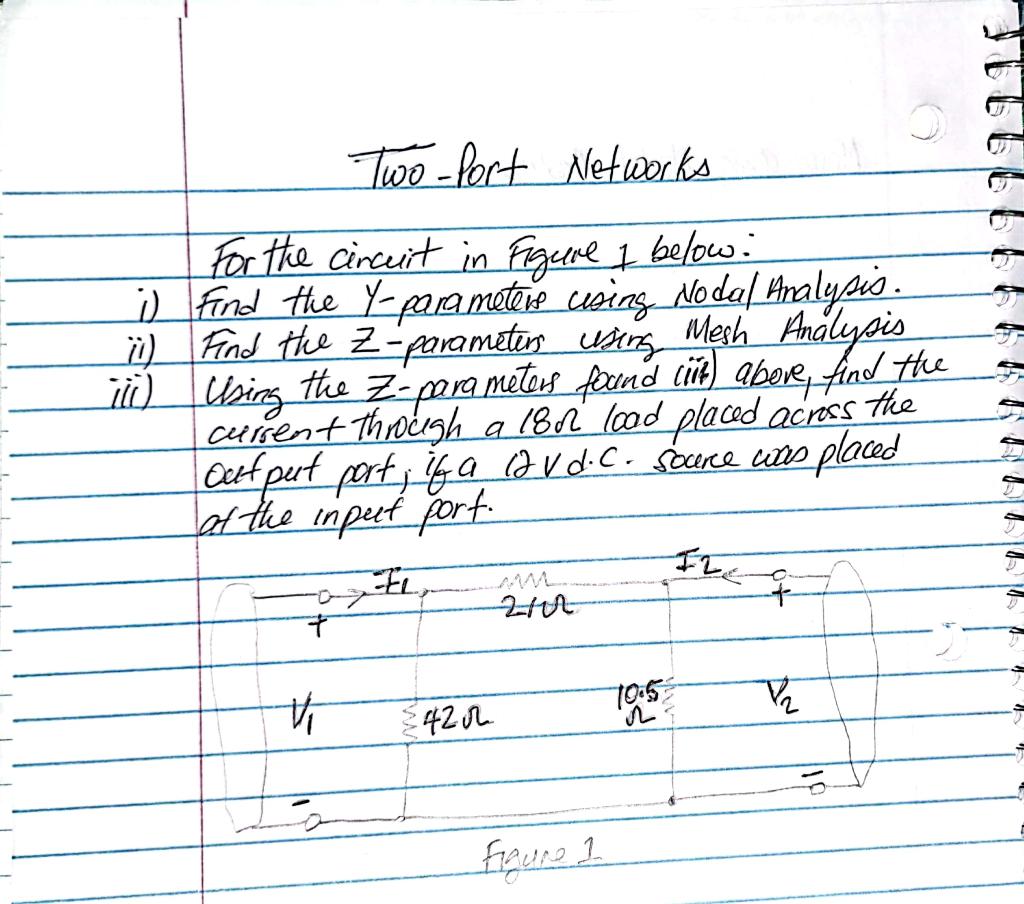 Two-Port Networks
For the circuit in Figure 1 below:
i) Find the Y-parameters using Nodal Analysis.
ii) Find the Z-parameters using Mesh Analysis
iii) Using the Z-parameters found (ii) above, find the
current through a 18Ω load placed across the
output port; if a 12 v d.c. source was placed
at the input port.
I1 I2
+ 21Ω +
V1 42Ω 10.5 Ω V2
- -
Figure 1